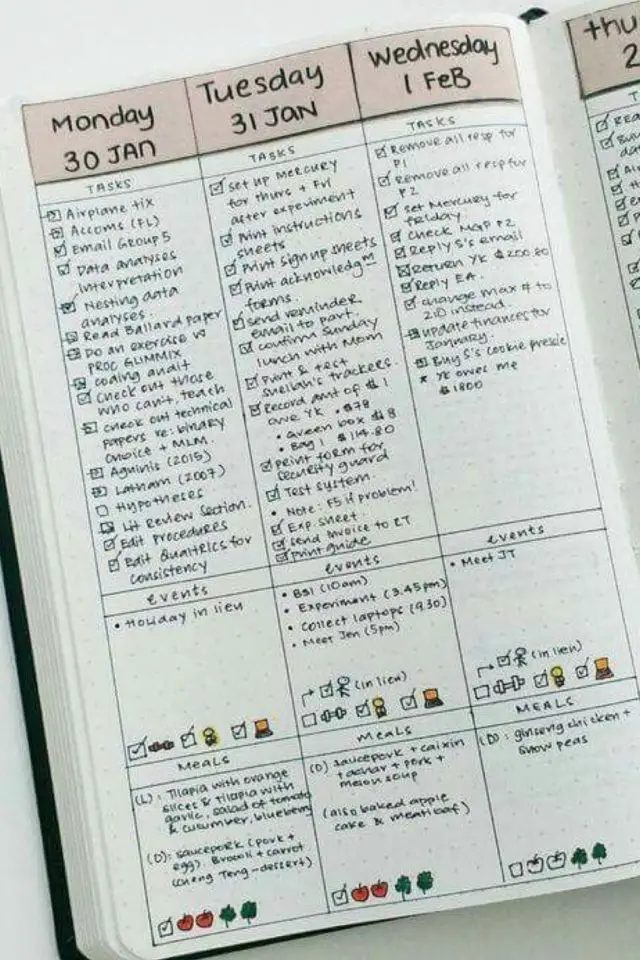 Monday
30 JAN
TASKS
Airplane tix
Accoms (FL)
Email Group 5
Data analyses
interpretation
Nesting data
analyses.
Read Ballard Paper
Do an exercise w
PROC GLIMMIX
coding audit
Check out those
who can't, teach
check out technical
papers re: binary
choice + MLM.
Aguinis (2015)
Latham (2007)
Hypotheses
Lit Review Section.
Edit Procedures
Edit Qualtrics for
consistency
events
• Holiday in lieu
MEALS
(L): Tilapia with orange
slices & tilapia with
garlic, salad of tomato
& cucumber, blueberry
(D): saucepork (pork +
egg), Brocoli + carrot
(Cheng Teng - dessert)
Tuesday
31 JAN
TASKS
set up Mercury
for thurs + Fri
after experiment
Print instructions
sheets
Print sign up sheets
Print acknowledgmt
forms.
send reminder
email to part.
confirm Sunday
lunch with Mom
Print & test
sheilah's trackers.
Record amt of $ I
owe YK • $78
• Queen box $8
• Bag 1 $114.80
print form for
security guard
Test system.
• Note: F5 if problem!
Exp. sheet.
send invoice to RT
Print guide
events
• BSI (10am)
• Experiment (3.45pm)
• Collect laptops (9.30)
• Meet Jen (5pm)
(in lieu)
MEALS
(D) saucepork + caixin
+ achar + pork +
melon soup
(also baked apple
cake & meatloaf)
Wednesday
1 FEB
TASKS
Remove all resp for
P1
Remove all resp for
P2
Set Mercury for
friday.
Check MGP P2
Reply S's email
Return YK $200.80
Reply EA.
change max # to
210 instead.
update finances for
January.
Buy S's cookie
* YK owes me
$1800
events
• Meet JT
(in lieu)
MEALS
(D): ginseng chicken +
snow peas
thu
2